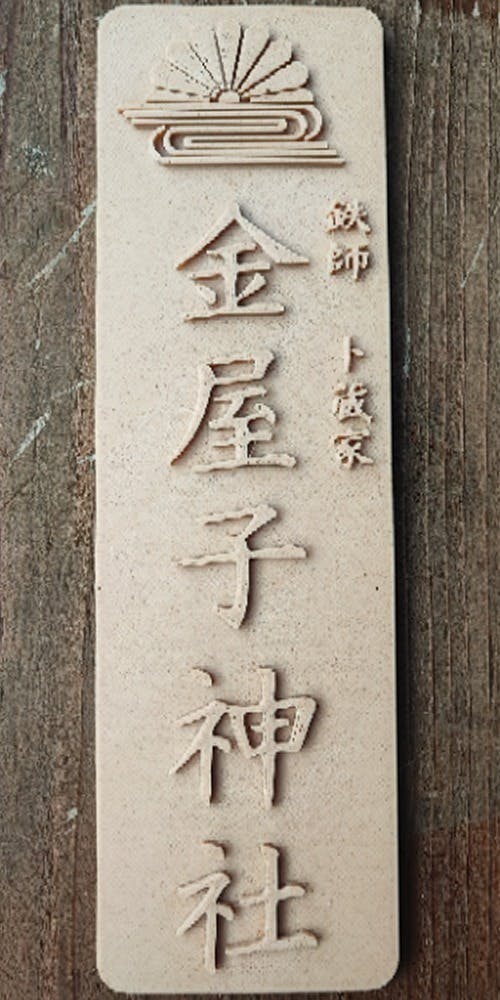 鉄師 卜蔵家
金屋子神社